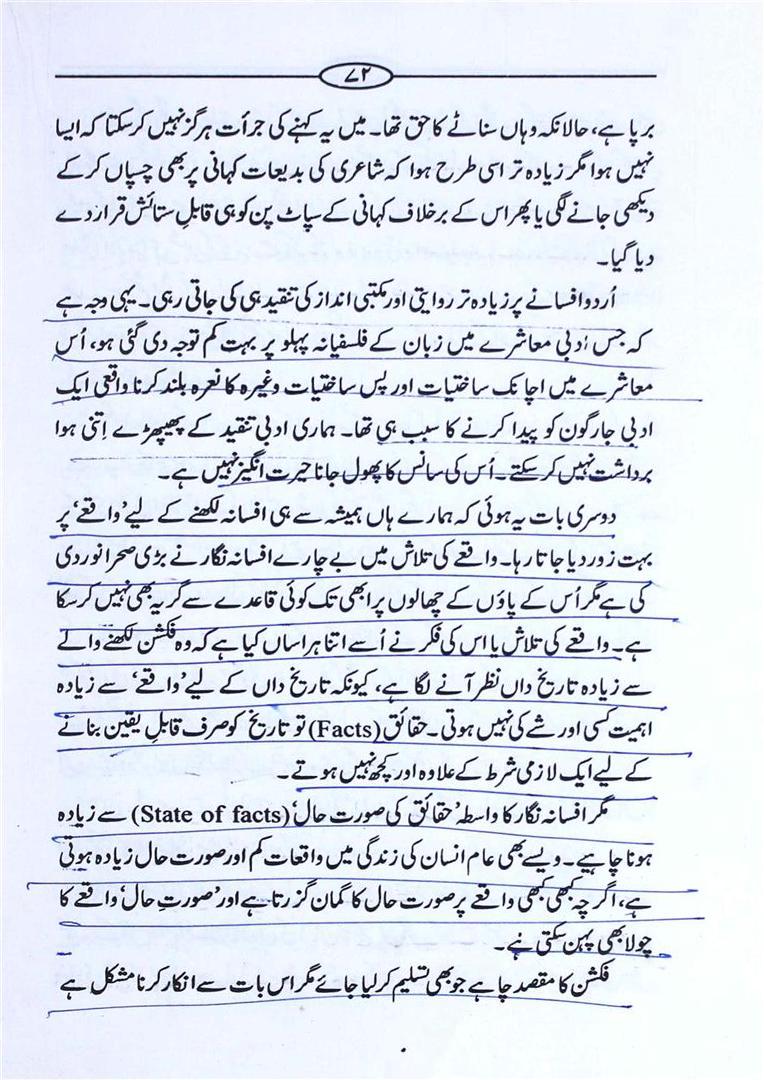 ۷۲
برپا ہے، حالانکہ وہاں سناٹے کا حق تھا۔ میں یہ کہنے کی جرأت ہرگز نہیں کرسکتا کہ ایسا
نہیں ہوا مگر زیادہ تر اسی طرح ہوا کہ شاعری کی بدیعات کہانی پر بھی چسپاں کرکے
دیکھی جانے لگی یا پھر اس کے برخلاف کہانی کے سپاٹ پن کو ہی قابلِ ستائش قرار دے
دیا گیا۔
اُردو افسانے پر زیادہ تر روایتی اور مکتبی انداز کی تنقید ہی کی جاتی رہی۔ یہی وجہ ہے
کہ جس ادبی معاشرے میں زبان کے فلسفیانہ پہلو پر بہت کم توجہ دی گئی ہو، اُس
معاشرے میں اچانک ساختیات اور پس ساختیات وغیرہ کا نعرہ بلند کرنا واقعی ایک
ادبی جارگون کو پیدا کرنے کا سبب ہی تھا۔ ہماری ادبی تنقید کے پھیپھڑے اِتنی ہوا
برداشت نہیں کرسکتے۔ اُس کی سانس کا پھول جانا حیرت انگیز نہیں ہے۔
دوسری بات یہ ہوئی کہ ہمارے ہاں ہمیشہ سے ہی افسانہ لکھنے کے لیے ’واقعے‘ پر
بہت زور دیا جاتا رہا۔ واقعے کی تلاش میں بے چارے افسانہ نگار نے بڑی صحرا نوردی
کی ہے مگر اُس کے پاؤں کے چھالوں پر ابھی تک کوئی قاعدے سے گریہ بھی نہیں کرسکا
ہے۔ واقعے کی تلاش یا اس کی فکر نے اُسے اتنا ہراساں کیا ہے کہ وہ فکشن لکھنے والے
سے زیادہ تاریخ داں نظر آنے لگا ہے، کیونکہ تاریخ داں کے لیے ’واقعے‘ سے زیادہ
اہمیت کسی اور شے کی نہیں ہوتی۔ حقائق (Facts) تو تاریخ کو صرف قابلِ یقین بنانے
کے لیے ایک لازمی شرط کے علاوہ اور کچھ نہیں ہوتے۔
مگر افسانہ نگار کا واسطہ ’حقائق کی صورت حال‘ (State of facts) سے زیادہ
ہونا چاہیے۔ ویسے بھی عام انسان کی زندگی میں واقعات کم اور صورت حال زیادہ ہوتی
ہے، اگرچہ کبھی کبھی واقعے پر صورت حال کا گمان گزرتا ہے اور ’صورتِ حال‘ واقعے کا
چولا بھی پہن سکتی ہے۔
فکشن کا مقصد چاہے جو بھی تسلیم کرلیا جائے مگر اس بات سے انکار کرنا مشکل ہے